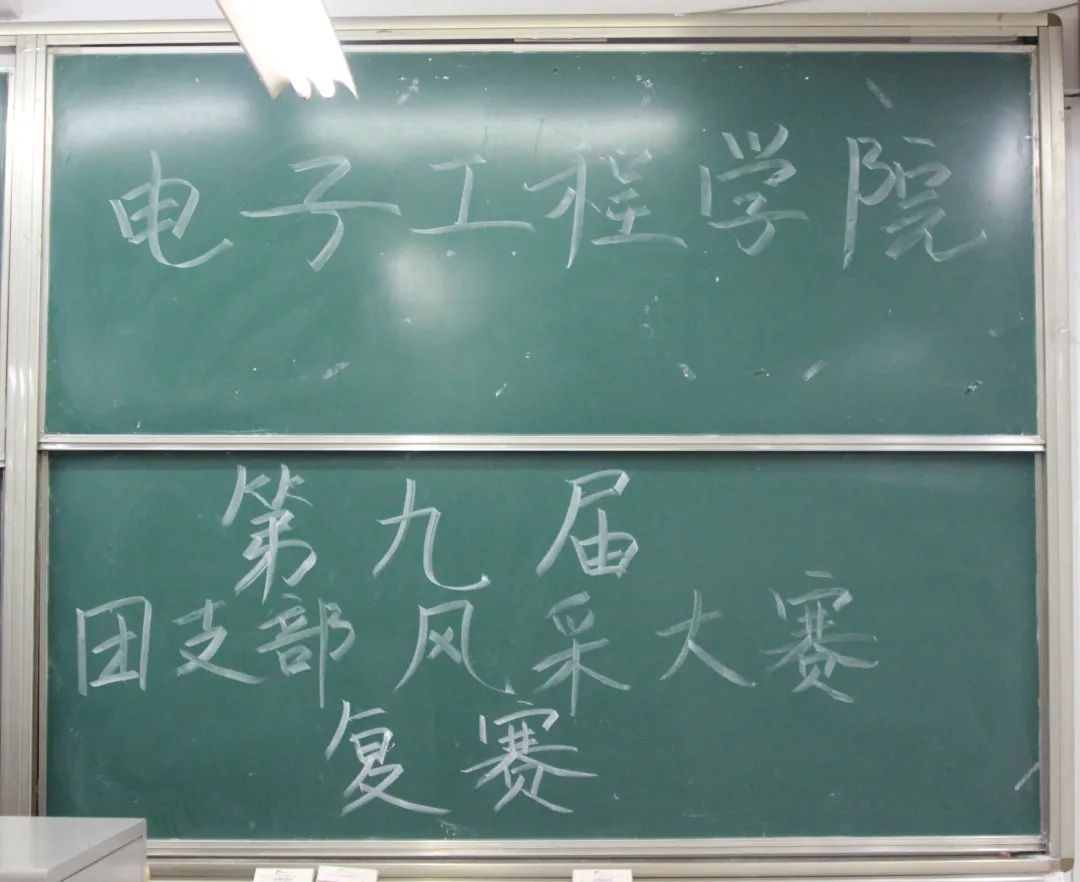 电子工程学院
第九届
团支部风采大赛
复赛